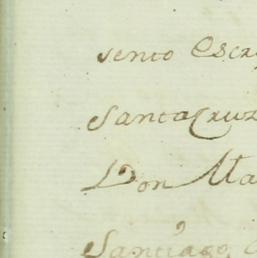 sento Escr
Santa Cruz
Don Ma
Santiago